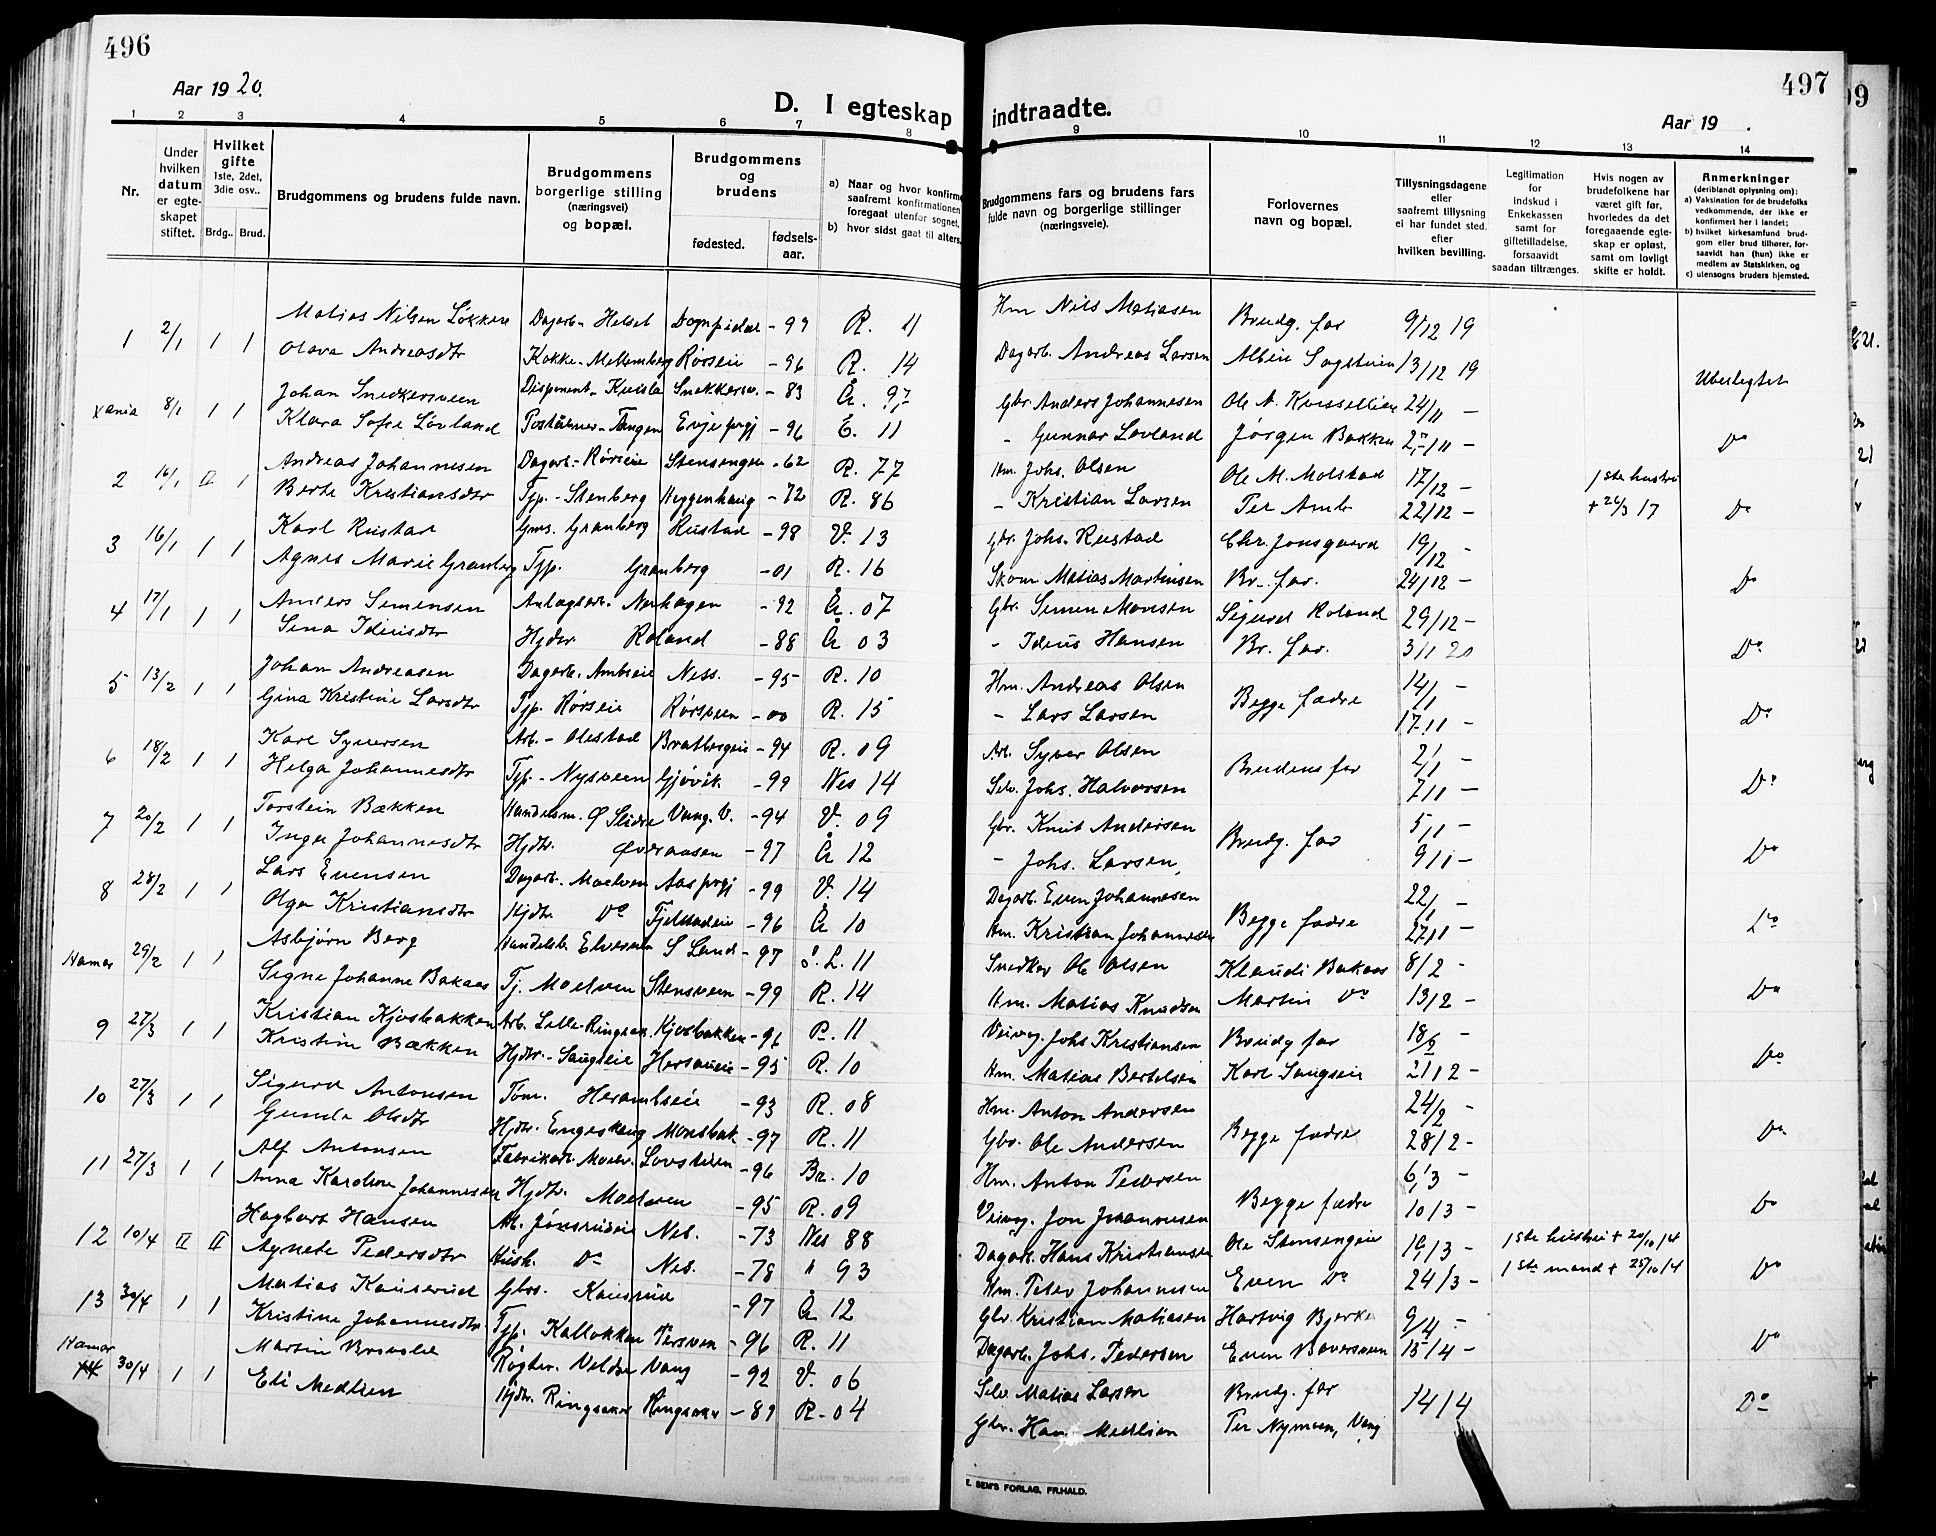 496
Aar 1920.
D. I egteskap
1 2 3 4 5 6 7 8
Nr.
Under hvilken datum er egteskapet stiftet.
Hvilket gifte 1ste, 2det, 3die osv..
Brdg.. Brud.
Brudgommens og brudens fulde navn.
Brudgommens borgerlige stilling (næringsvei) og bopæl.
Brudgommens og brudens
fødested. fødselsaar.
a) Naar og hvor konfirme
saafremt konfirmationen
foregaat utenfor sognet,
b) hvor sidst gaat til alters.
1 2/1 1 1 Matias Nilsen Løkken Dagarb. - Helset - 99 R. 11
Olava Andreasdtr Kokke - Mellemberg Rørseie - 96 R. 14
Xania 8/1 1 1 Johan Snedkersveen Disponent - Snekkersv. - 83 Å. 97
Klara Sofie Lövland - Tangen Evje prgj - 96 E. 11
2 16/1 II 1 Andreas Johannesen Dagarb. - Rørseie Stensengen - 62 R. 77
Berte Kristiansdtr Tjp. - Stenberg Heggenhaug - 72 R. 86
3 16/1 1 1 Karl Rustad Gms. Granberg Rustad - 98 V. 13
Agnes Marie Granberg Tjp. Granberg - 01 R. 16
4 17/1 1 1 Anders Simensen Nerhagen - 92 Å. 07
Sina Idiusdtr Hjdtr Roland - 88 Å 03
5 13/2 1 1 Johan Andreasen Dagarb. Ambseie Ness. - 95 R. 10
Gina Kristine Larsdtr Tjp. Rørseie Rørsveen - 00 R. 15
6 18/2 1 1 Karl Syversen Arb. - Olestad Bratbergeie - 94 R. 09
Helga Johannesdtr Tjp. - Nysveen Gjövik - 99 Nes 14
7 20/2 1 1 Torstein Bækken Handelsm. Ø Slidre Vang. V. - 94 V. 09
Inga Johannesdtr Hjdtr. Øveraasen - 97 Å 12
8 28/2 1 1 Lars Evensen Dagarb. Moelven Aas prgj - 99 V. 14
Olga Kristiansdtr Hjdtr Do Fjelstadeie - 96 Å 10
Hamar 29/2 1 1 Asbjørn Berg Handelsb. Elvesveen S Land - 97 S. L. 11
Signe Johanne Bakaas Tj. Moelven Stensveen - 99 R. 14
9 27/3 1 1 Kristian Kjosbakken Arb. Lille-Ringsak. Kjosbakken - 96 R. 11
Kristine Bækken Hjdtr. - Saugseie - 95 R. 10
10 27/3 1 1 Sigurd Antonsen Töm. Herambseie - 93 R. 08
Gunda Olsdtr Hjdtr. Engeskaug Monsbak - 97 R. 11
11 27/3 1 1 Alf Antonsen Fabrikarb. Moelv. Lovstuen - 96 Br. 10
Anna Karoline Johannesen Hjdtr. Moelven - 95 R. 09
12 10/4 II II Hagbart Hansen Arb. Jönsrudeie Nes. - 73 Nes 88
Agnete Pedersdtr Hush. Do Nes. - 78 " 93
13 30/4 1 1 Matias Kauserud Gbrs. Kausrud - 97 Å 12
Kristine Johannesdtr. Tjp. Kallokken Persven - 96 R. 11
Hamar 14 30/4 1 1 Martin Brovold Røgter. Veldre Vang - 92 V. 06
Eli Medlien Hjdtr. Ringsaker Ringsaker - 89 R. 04
497
indtraadte.
Aar 19 .
9 10 11 12 13 14
Brudgommens fars og brudens fars fulde navn og borgerlige stillinger (næringsveie).
Forlovernes navn og bopæl.
Tillysningsdagene eller saafremt tillysning ei har fundet sted. efter hvilken bevilling.
Legitimation for indskud i Enkekassen samt for giftetilladelse, forsaavidt saadan tiltrænges.
Hvis nogen av brudefolkene har været gift før, hvorledes da det foregaaende egteskap er opløst, samt om lovligt skifte er holdt.
Anmerkninger
(deriblandt oplysning om):
a) Vaksination for de brudefolks vedkommende, der ikke er konfirmert her i landet;
b) hvilket kirkesamfund brudgom eller brud tilhører, forsaavidt han (hun) ikke er medlem av Statskirken, og
c) utensogns bruders hjemsted.
Hm Nils Matiasen Brudg. far 9/12 19
Dagarb. Andreas Larsen 13/12 19
Ubeslegtet
Gbr Anders Johannesen Ole A. 24/11 -
- Gunnar Lovland Jörgen Bakken 25/11 - Do
Hm. Johs. Olsen Ole M. Molstad 17/12 - 1ste hustru
- Kristian Larsen Per Amb 22/12 - + 26/3 17 Do
Gbr. Johs. Rustad Chr. Jonsgaard 19/12 -
Skom Matias Martinsen Br. far. 24/12 - Do
Gbr. Simen Monsen Sigurd Roland 29/12 -
- Idius Hansen Br. far. 3/1 20 Do
Hm. Andreas Olsen Begge fædre 14/1 -
- Lars Larsen 17/1 - Do
Arb. Syver Olsen Brudens far 2/1 -
Selv. Johs. Halvorsen 7/1 - Do
Gbr. Knut Andersen Brudg. far 5/1 -
- Johs. Larsen, 9/1 - Do
Dagarb. Even Johannesen Begge fædre 22/1 -
Hm. Kristian Johannesen 27/1 - Do
Snedker Ole Olsen Klaudi Bakaas 8/2 -
Hm. Matias Knudsen Martin Do 13/2 - Do
Veivog. Johs Kristiansen Brudg far 18/2 -
Hm. Matias Bertelsen Karl Saugseie 21/2 - Do
Hm. Anton Andersen Begge fædre 24/2 -
Gbr. Ole Andersen 28/2 - Do
Hm. Anton Pedersen Begge fædre 6/3 -
Veivog. Jon Johannesen 10/3 - Do
Dagarb. Hans Kristiansen Ole Stensengeie 19/3 - 1ste hustru + 20/10 14
Hm. Peder Johannesen Even Do 24/3 - 1ste mand + 25/10 14 Do
Gbr. Kristian Matiasen Hartvig Bjerke 9/4 -
Dagarb. Johs. Pedersen Even Baversveen 15/4 - Do
Selv Matias Larsen Brudg. far 14/4
Gbr. Hans Medlien Per Nymoen, Vang Do
E. SEM'S FORLAG, FR.HALD.